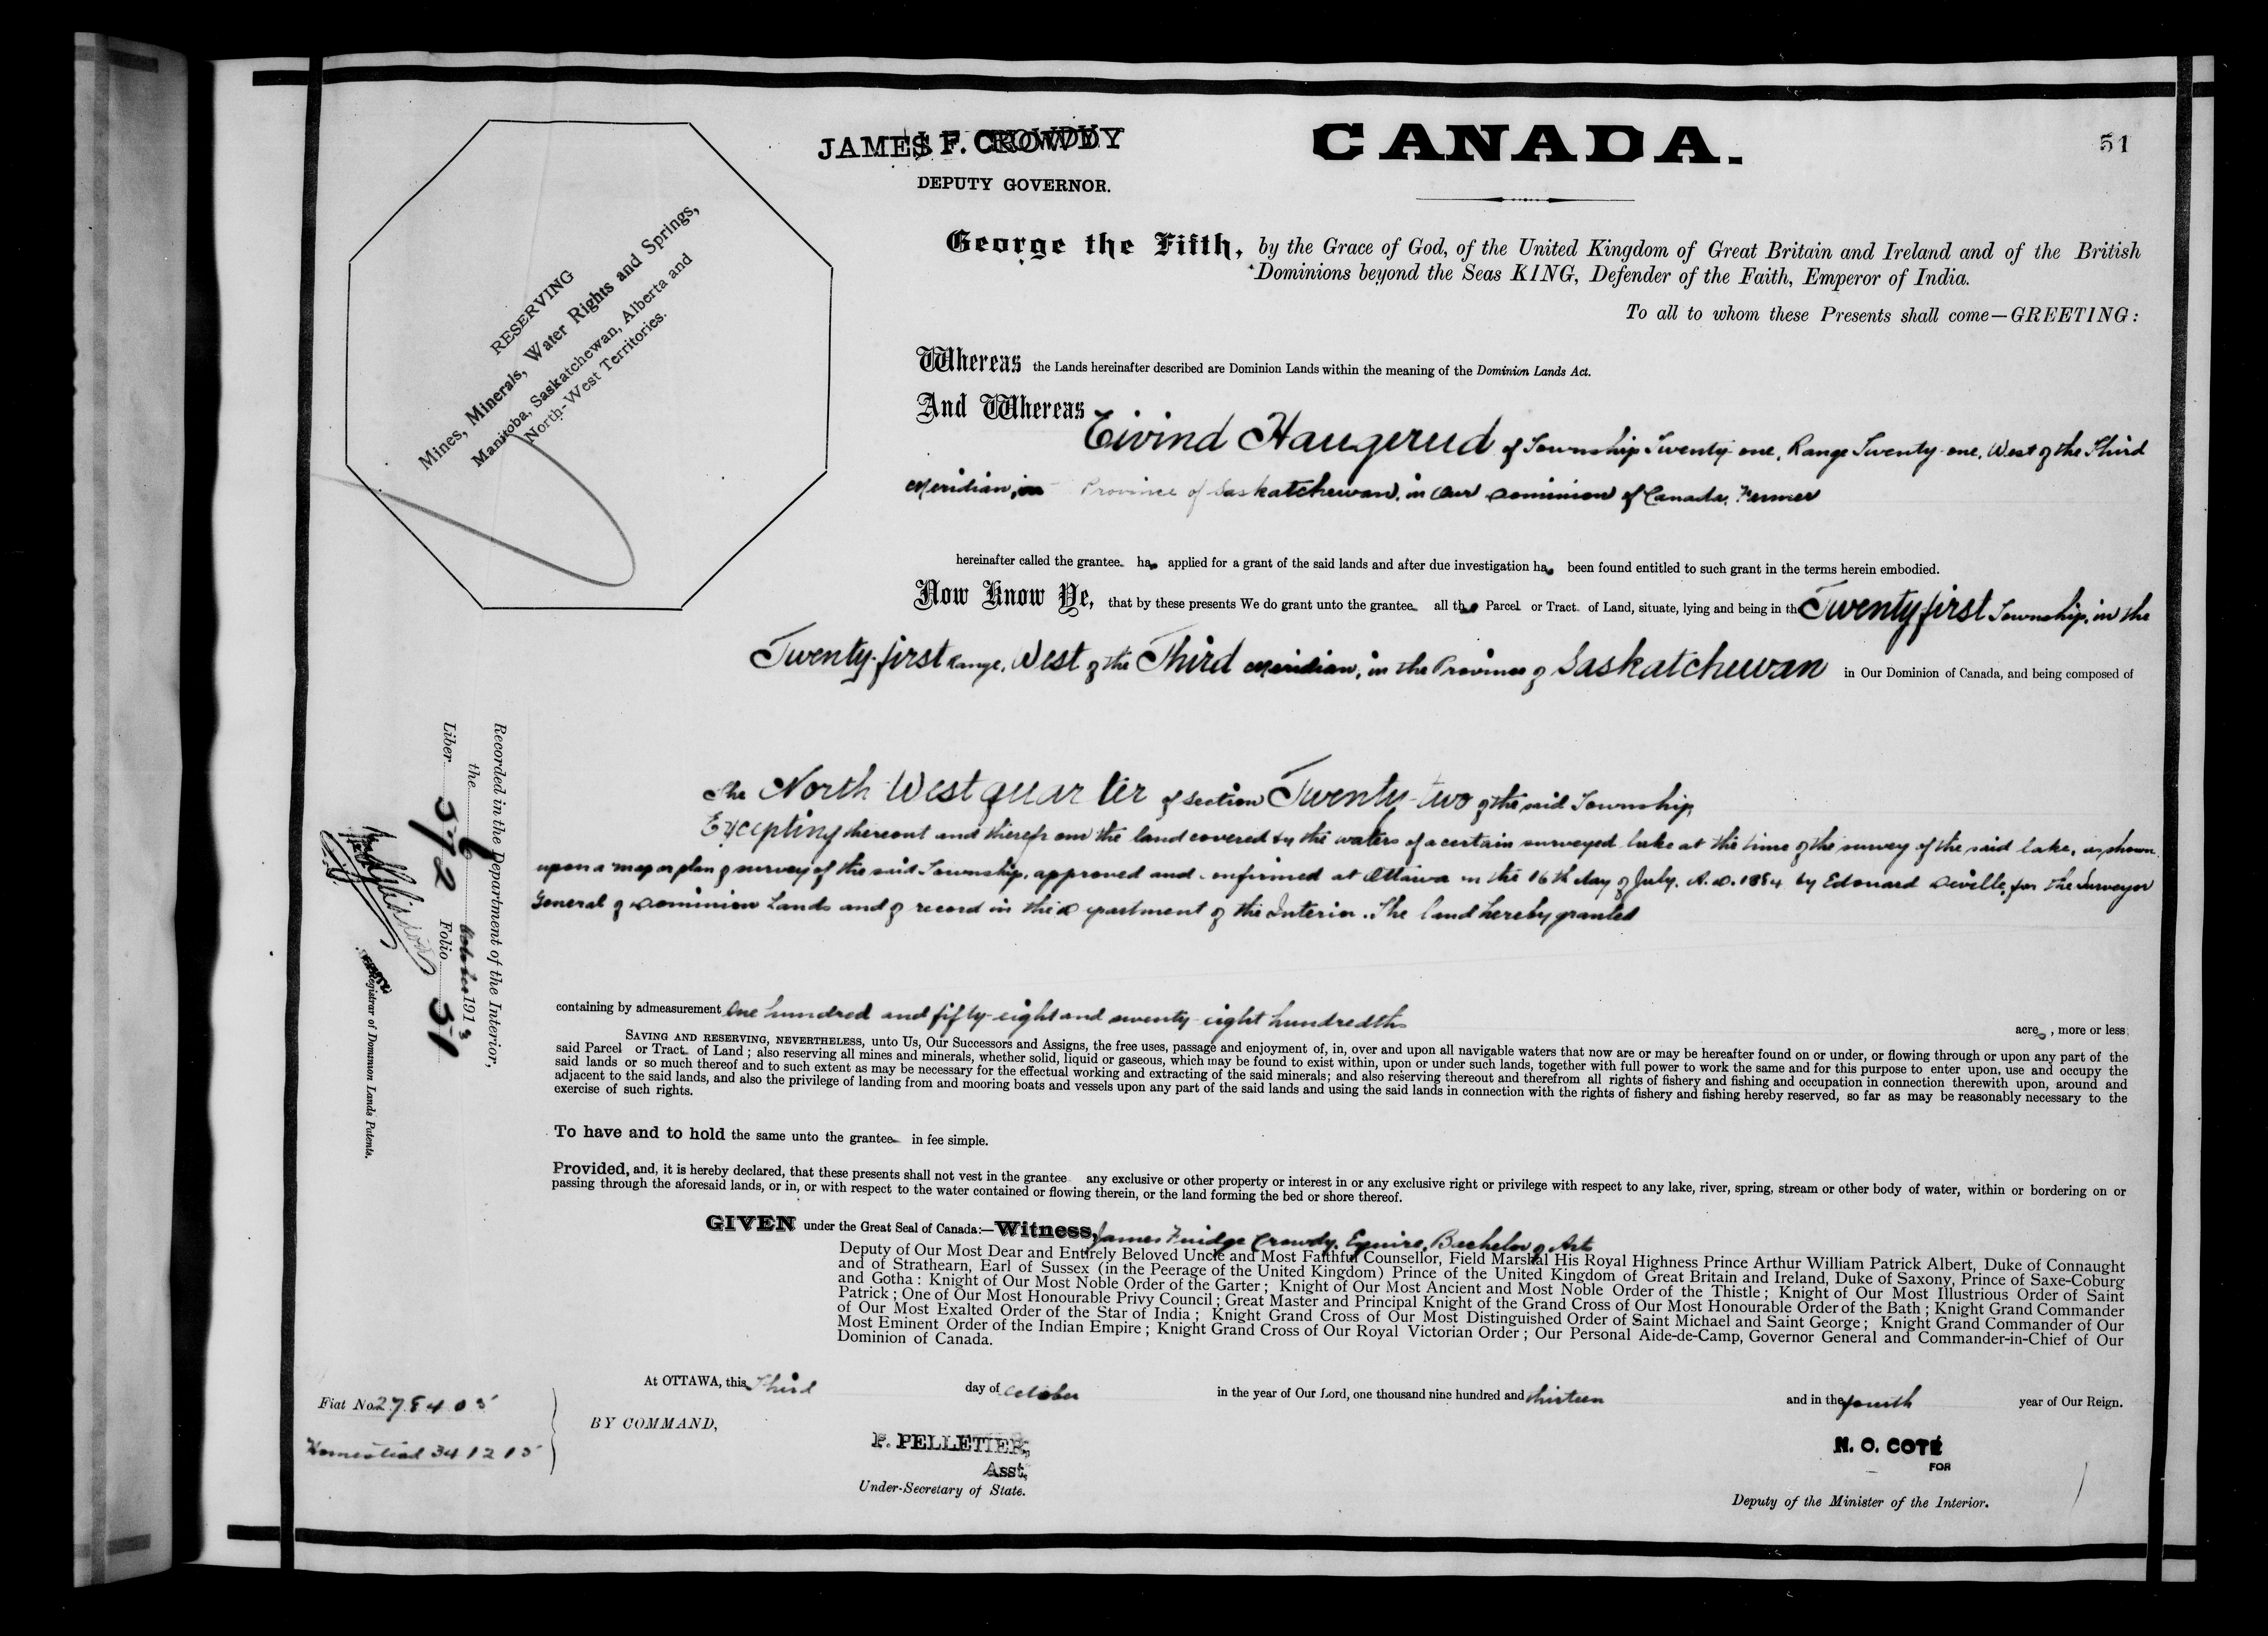 JAMES F. CROWDY
DEPUTY GOVERNOR.
CANADA.
51
RESERVING
Mines, Minerals, Water Rights and Springs,
Manitoba, Saskatchewan, Alberta and
North-West Territories.
George the Fifth, by the Grace of God, of the United Kingdom of Great Britain and Ireland and of the British
Dominions beyond the Seas KING, Defender of the Faith, Emperor of India.
To all to whom these Presents shall come—GREETING:
Whereas the Lands hereinafter described are Dominion Lands within the meaning of the Dominion Lands Act.
And Whereas Eivind Haugerud of Township Twenty-one, Range Twenty-one, West of the Third
Meridian, in Province of Saskatchewan, in Our Dominion of Canada, Farmer
hereinafter called the grantee has applied for a grant of the said lands and after due investigation has been found entitled to such grant in the terms herein embodied.
Now Know Ye, that by these presents We do grant unto the grantee all that Parcel or Tract of Land, situate, lying and being in the Twenty first Township, in the
Twenty-first Range, West of the Third Meridian, in the Province of Saskatchewan in Our Dominion of Canada, and being composed of
The North West quarter of Section Twenty-two of the said Township,
Excepting thereout and therefrom the land covered by the waters of a certain surveyed lake at the time of the survey of the said lake, as shown
upon a map or plan of survey of the said Township, approved and confirmed at Ottawa on the 16th day of July, A.D. 1884 by Edouard Deville, for the Surveyor
General of Dominion Lands and of record in the Department of the Interior. The land hereby granted
containing by admeasurement One hundred and fifty-eight and twenty eight hundredths acres, more or less;
SAVING AND RESERVING, NEVERTHELESS, unto Us, Our Successors and Assigns, the free uses, passage and enjoyment of, in, over and upon all navigable waters that now are or may be hereafter found on or under, or flowing through or upon any part of the
said Parcel or Tract of Land; also reserving all mines and minerals, whether solid, liquid or gaseous, which may be found to exist within, upon or under such lands, together with full power to work the same and for this purpose to enter upon, use and occupy the
said lands or so much thereof and to such extent as may be necessary for the effectual working and extracting of the said minerals; and also reserving thereout and therefrom all rights of fishery and fishing and occupation in connection therewith upon, around and
adjacent to the said lands, and also the privilege of landing from and mooring boats and vessels upon any part of the said lands and using the said lands in connection with the rights of fishery and fishing hereby reserved, so far as may be reasonably necessary to the
exercise of such rights.
To have and to hold the same unto the grantee in fee simple.
Provided, and, it is hereby declared, that these presents shall not vest in the grantee any exclusive or other property or interest in or any exclusive right or privilege with respect to any lake, river, spring, stream or other body of water, within or bordering on or
passing through the aforesaid lands, or in, or with respect to the water contained or flowing therein, or the land forming the bed or shore thereof.
GIVEN under the Great Seal of Canada:—Witness, James Fuidge Crowdy, Esquire, Bachelor of Arts
Deputy of Our Most Dear and Entirely Beloved Uncle and Most Faithful Counsellor, Field Marshal His Royal Highness Prince Arthur William Patrick Albert, Duke of Connaught
and of Strathearn, Earl of Sussex (in the Peerage of the United Kingdom) Prince of the United Kingdom of Great Britain and Ireland, Duke of Saxony, Prince of Saxe-Coburg
and Gotha: Knight of Our Most Noble Order of the Garter; Knight of Our Most Ancient and Most Noble Order of the Thistle; Knight of Our Most Illustrious Order of Saint
Patrick; One of Our Most Honourable Privy Council; Great Master and Principal Knight of the Grand Cross of Our Most Honourable Order of the Bath; Knight Grand Commander
of Our Most Exalted Order of the Star of India; Knight Grand Cross of Our Most Distinguished Order of Saint Michael and Saint George; Knight Grand Commander of Our
Most Eminent Order of the Indian Empire; Knight Grand Cross of Our Royal Victorian Order; Our Personal Aide-de-Camp, Governor General and Commander-in-Chief of Our
Dominion of Canada.
At OTTAWA, this Third day of October in the year of Our Lord, one thousand nine hundred and thirteen and in the fourth year of Our Reign.
Fiat No. 278405
Homestead 341215
BY COMMAND,
P. PELLETIER,
Asst.
Under-Secretary of State.
N. O. COTÉ
FOR
Deputy of the Minister of the Interior.
Recorded in the Department of the Interior,
the 6 October 1913
Liber 572 Folio 51
Registrar of Dominion Lands Patents.